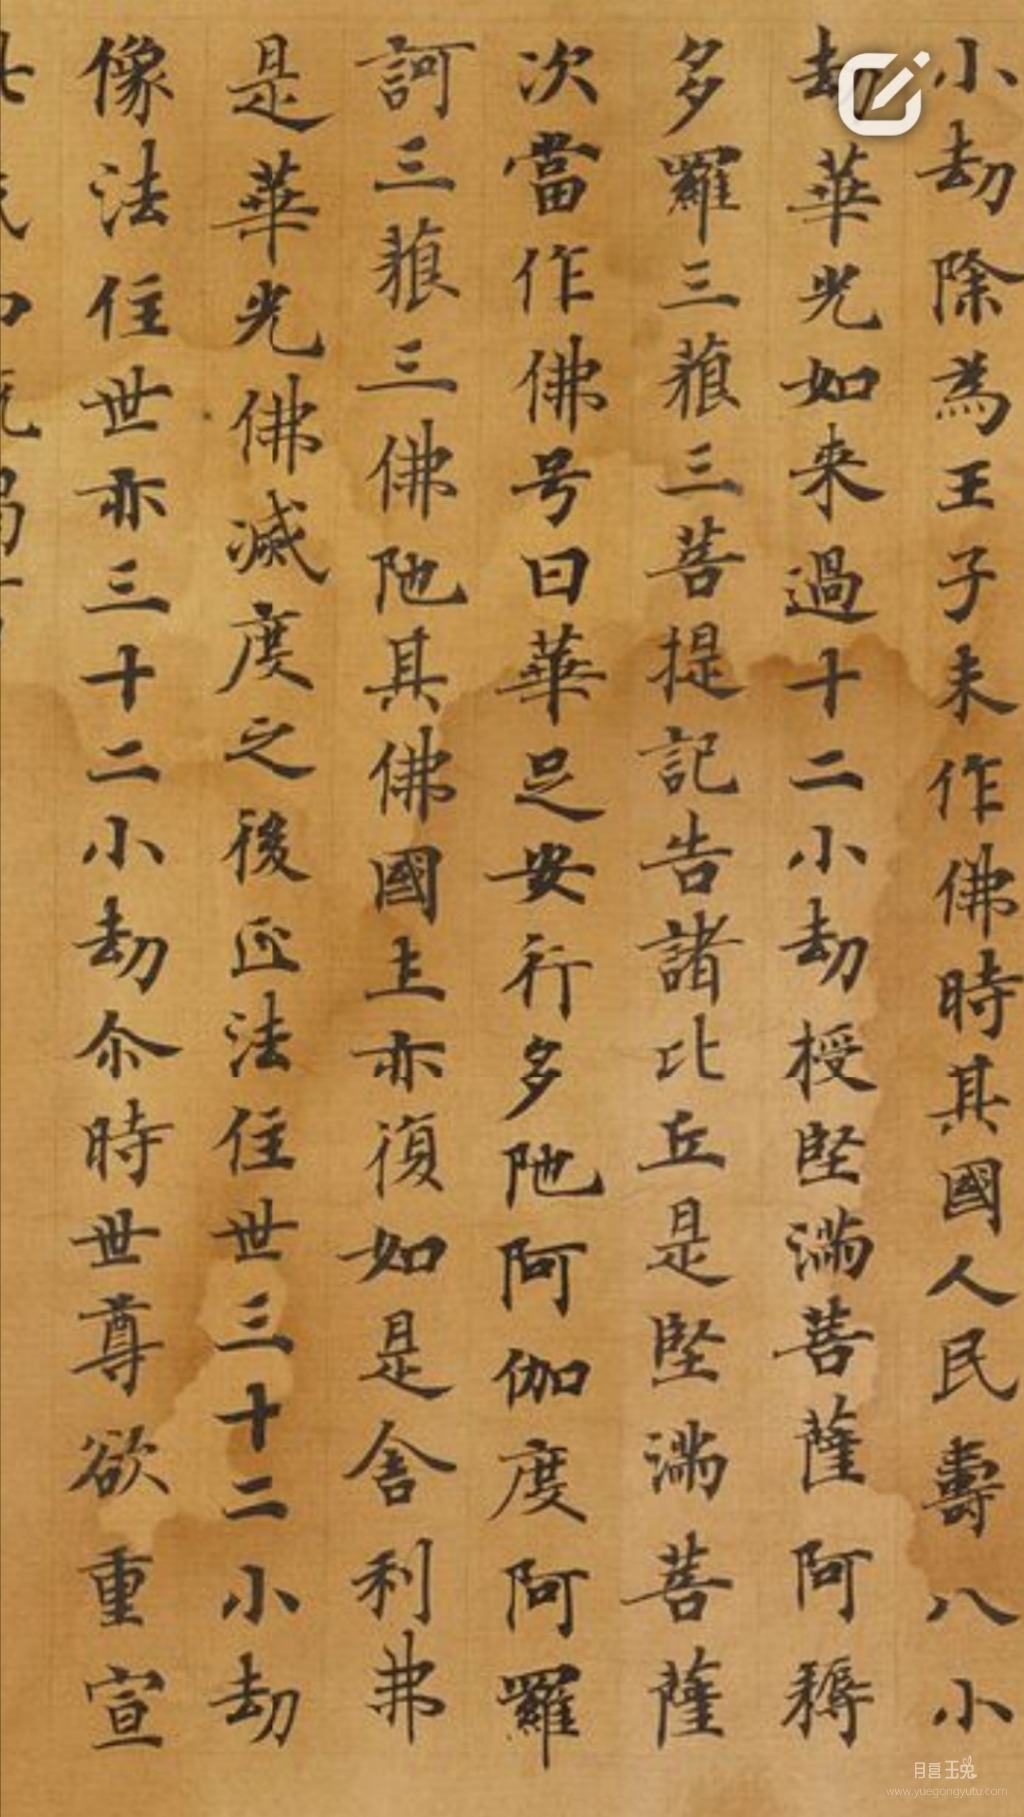 小劫除為王子未作佛時其國人民壽八小
劫華光如来過十二小劫授堅滿菩薩阿耨
多羅三藐三菩提記告諸比丘是堅滿菩薩
次當作佛号曰華足安行多陁阿伽度阿羅
訶三藐三佛陁其佛國土亦復如是舍利弗
是華光佛滅度之後正法住世三十二小劫
像法住世亦三十二小劫尒時世尊欲重宣
月宫玉兔
www.yuegongyutu.com